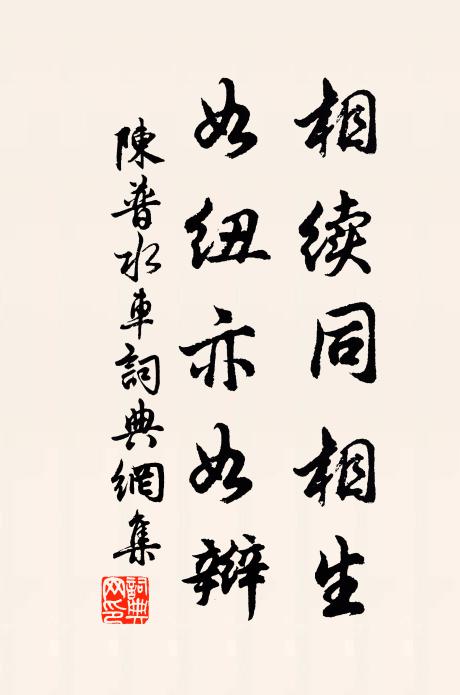 相续同相生
如纽亦如辫
陳普水車詞典網集
詞典网印